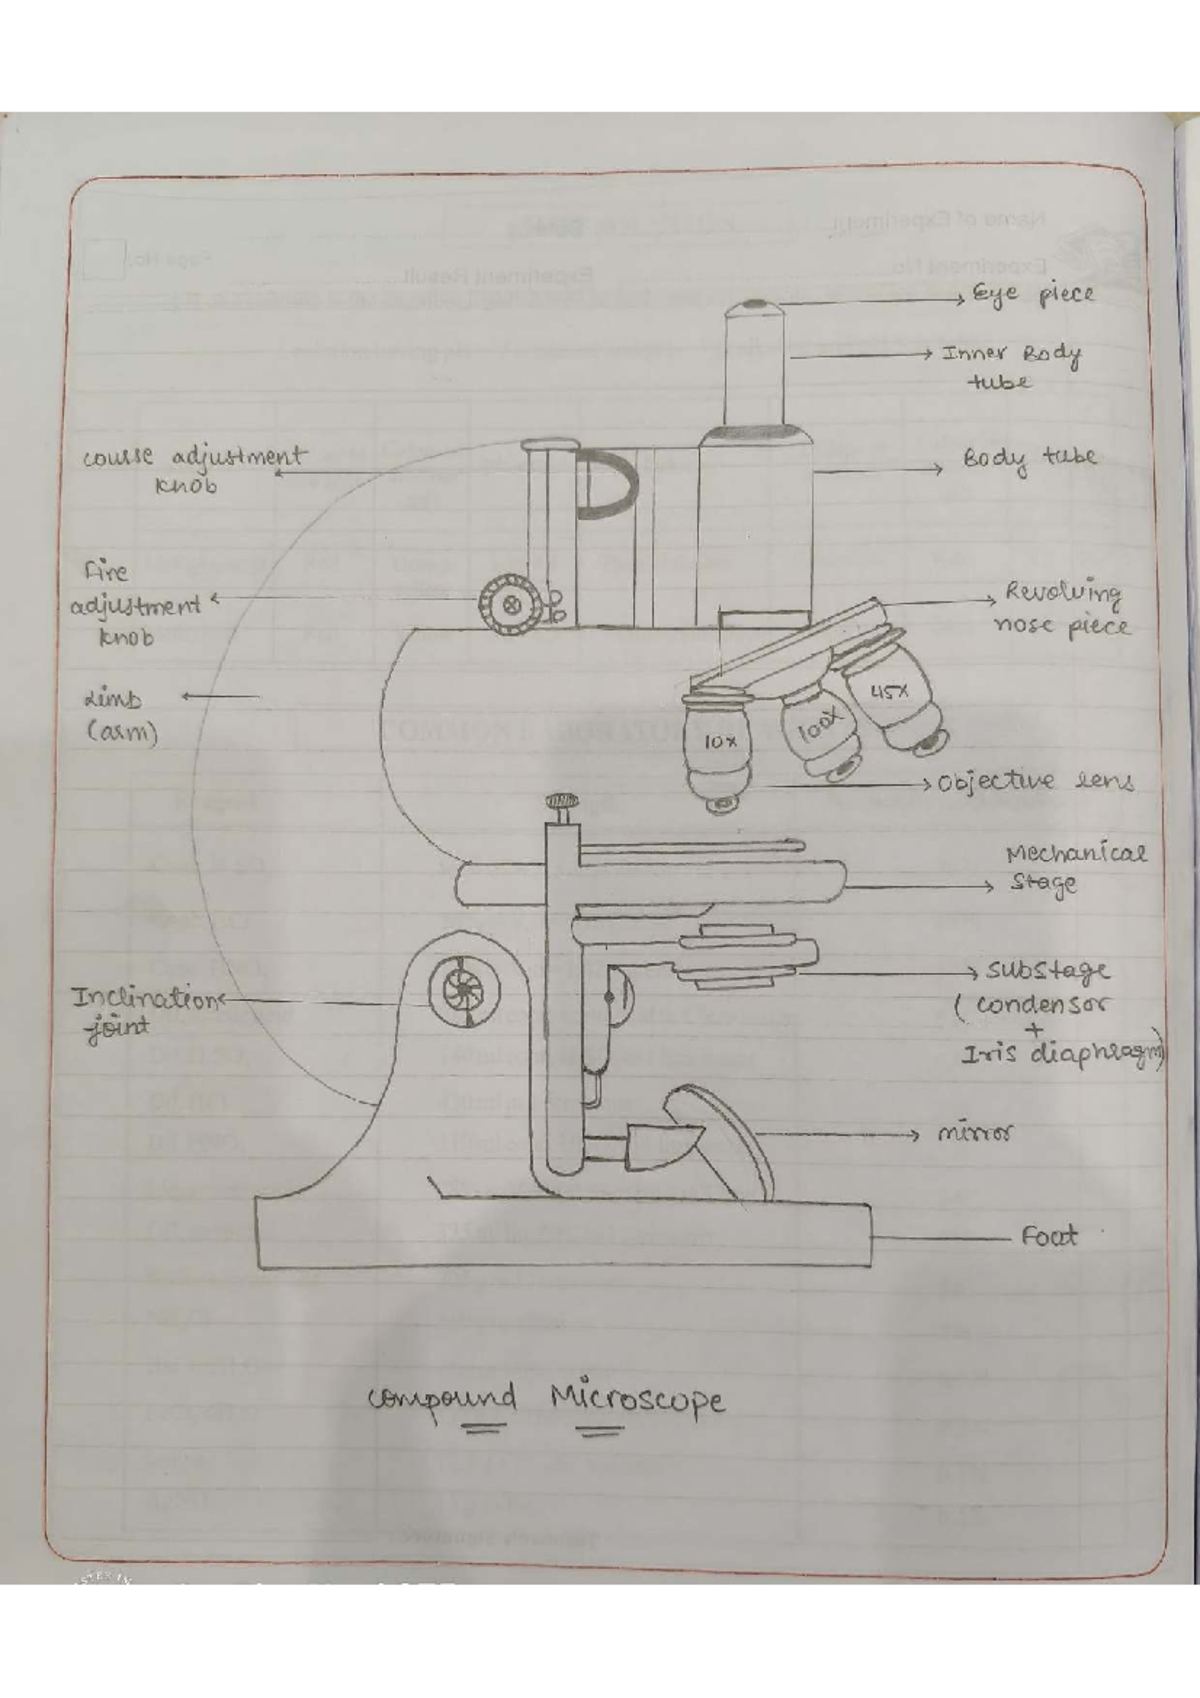 Eye piece
Inner Body
tube
course adjustment
knob
Body tube
Fine
adjustment
knob
Revolving
nose piece
Limb
(arm)
45X
100X
10X
Objective lens
Mechanical
Stage
Inclination
joint
substage
(condensor
+
Iris diaphragm)
mirror
Foot
compound Microscope